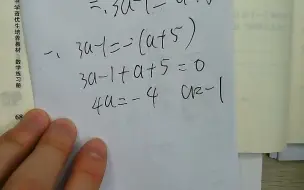 ∴ 3a-1=
∴ 3a-1=-(a+5)
3a-1+a+5=0
4a=-4 a=-1